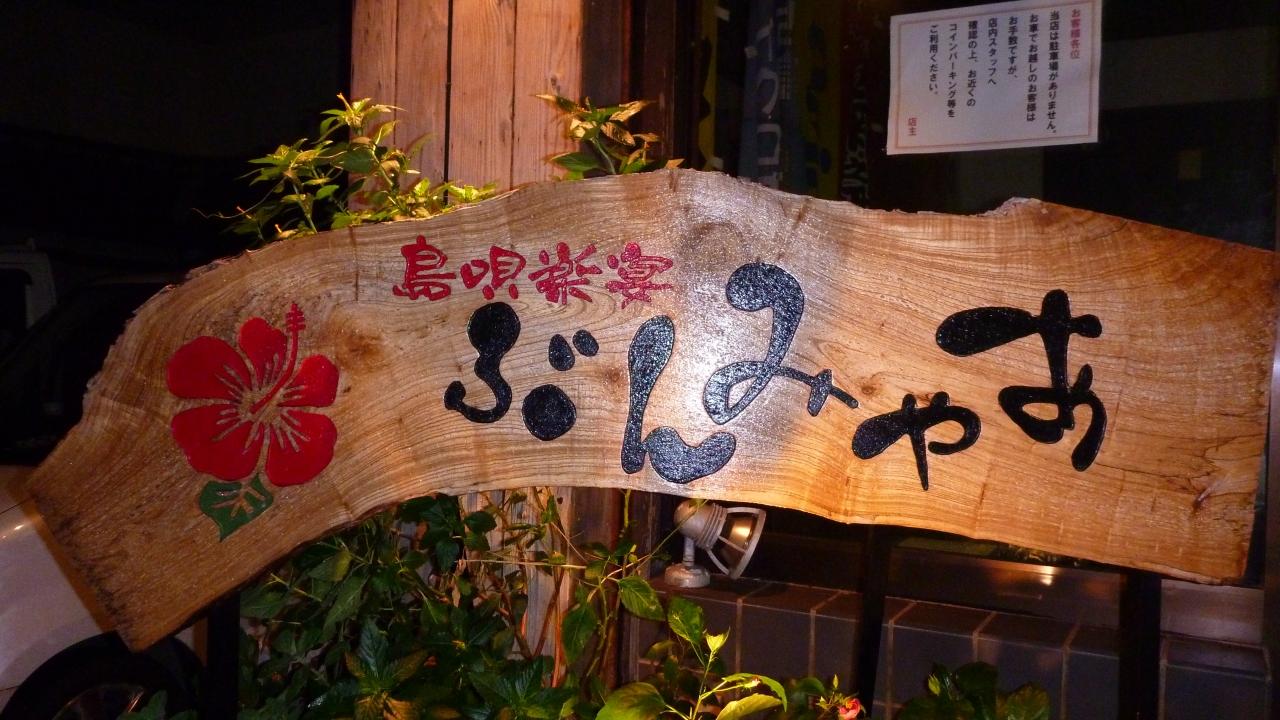 島唄楽宴
ぶんみゃあ
お客様各位
当店は駐車場がありません。
お車でお越しのお客様は
お手数ですが、
店内スタッフへ
確認の上、お近くの
コインパーキング等を
ご利用ください。
店主